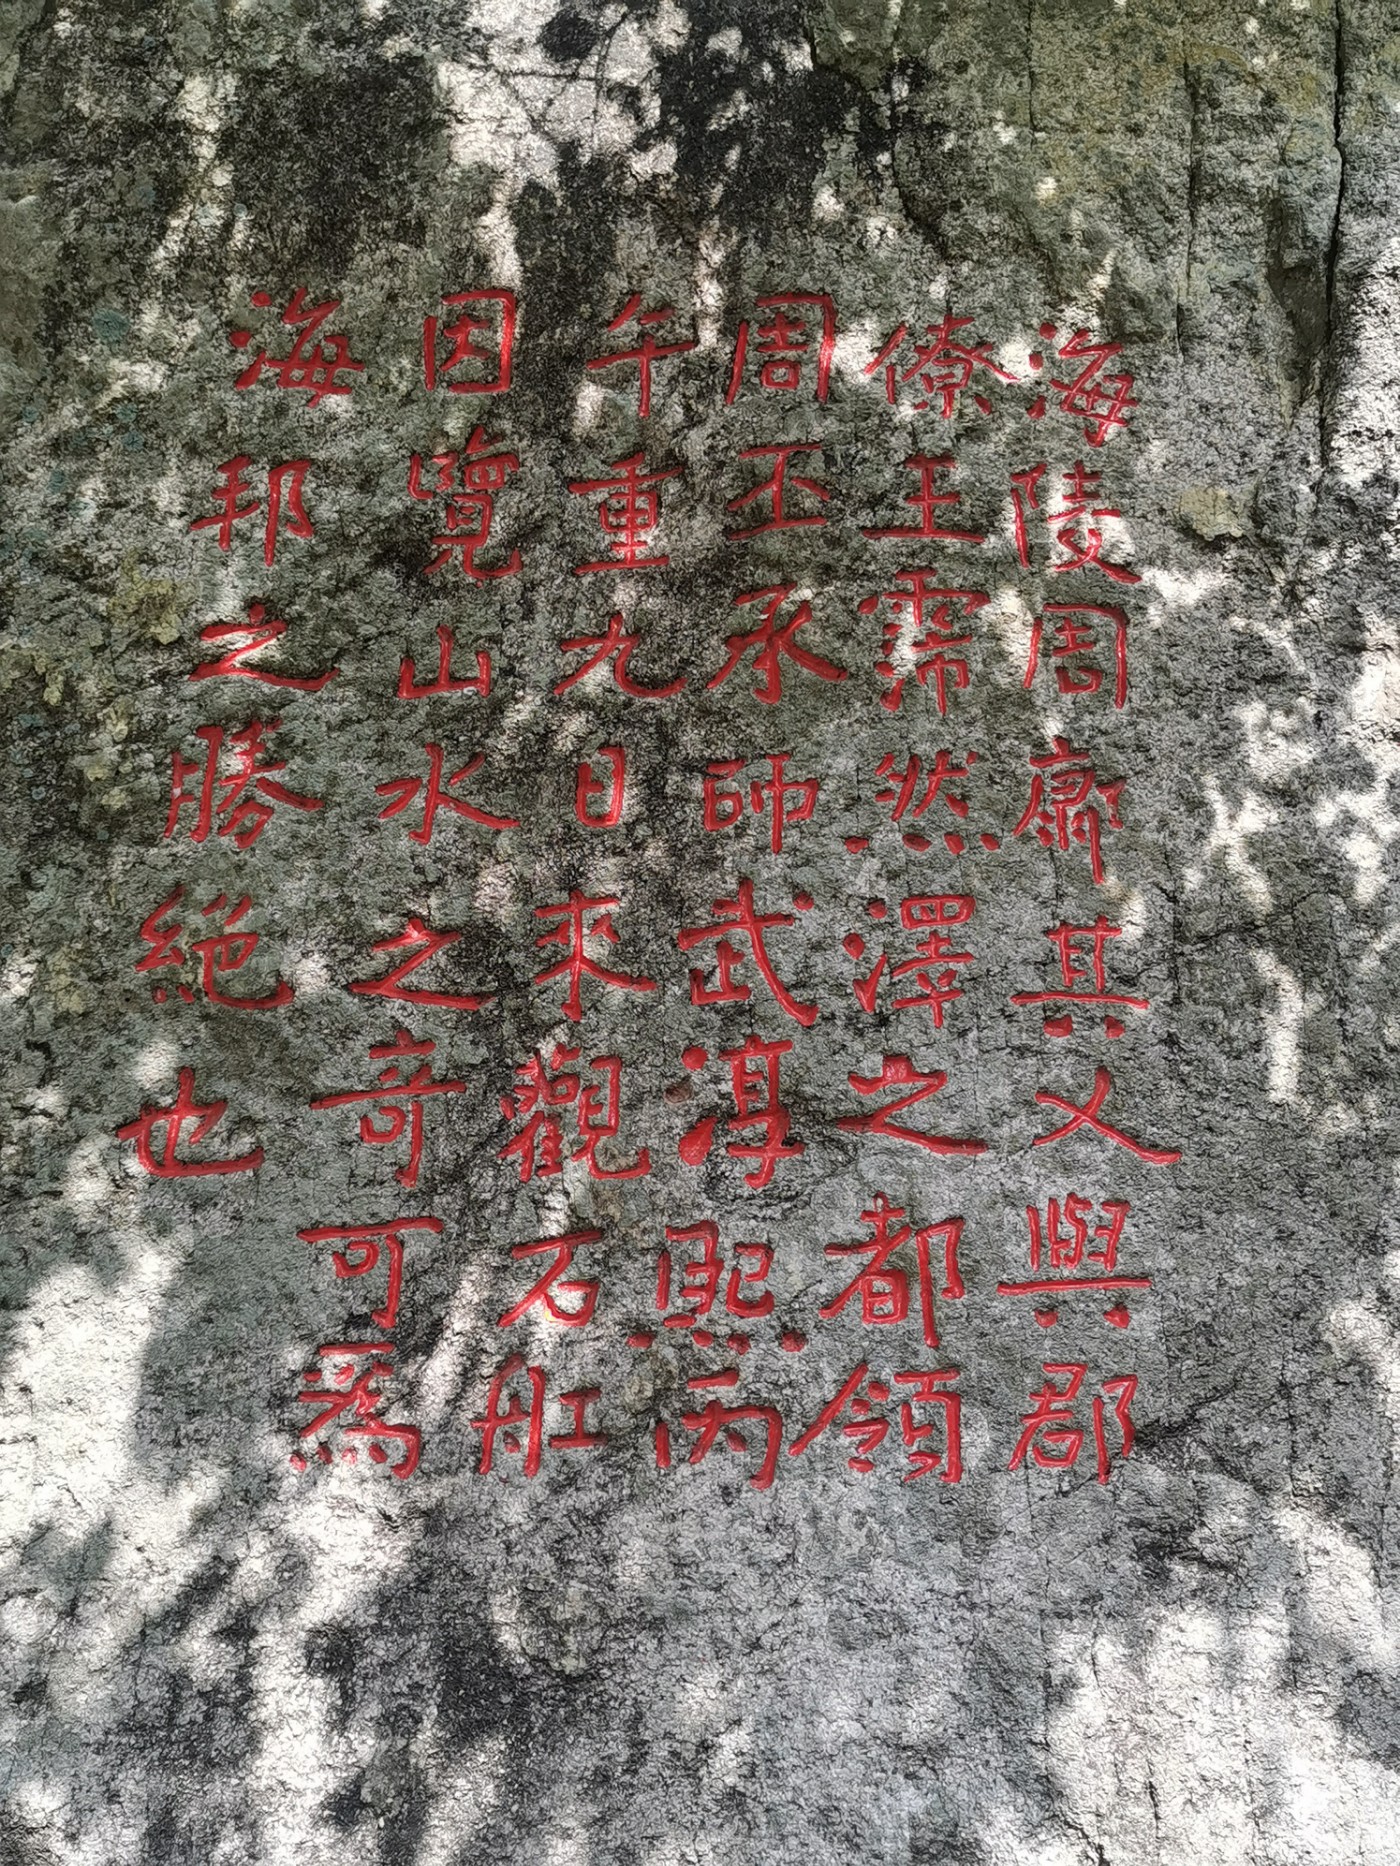 海陵周其乂與郡
僚王霈然澤之都領
周丕承師武淳熙丙
午重九日來觀石舡
因覽山水之奇可爲
海邦之勝絕也